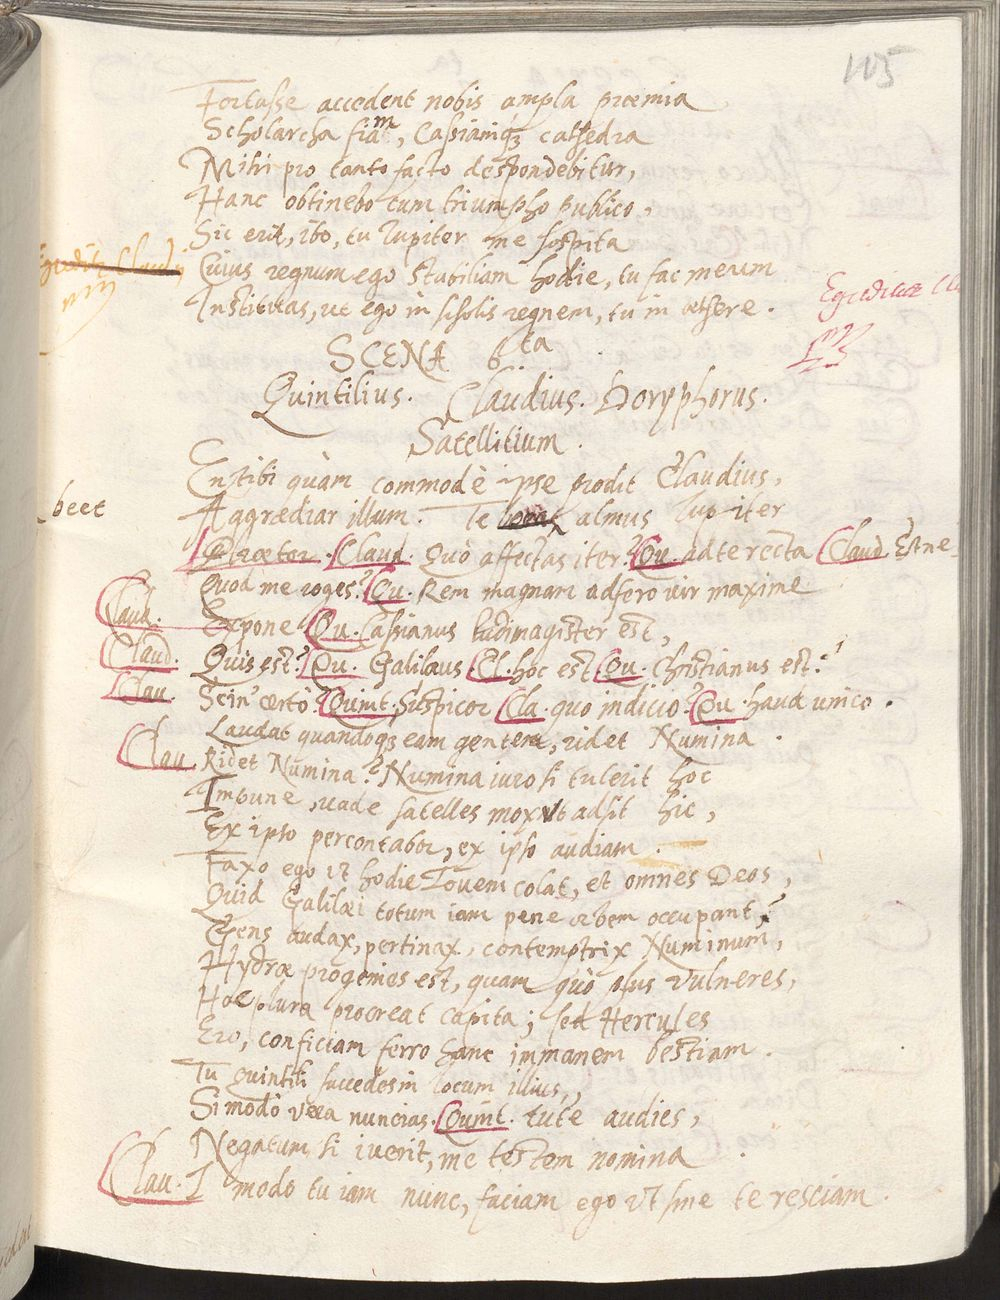 115
Fortasse accedent nobis ampla præmia
Scholarcha fiam, Cassianiqz cathedra
Mihi pro tanto facto despondebitur,
Hanc obtinebo cum triumpho publico,
Sic erit, ibo, tu Iupiter me sospita
Cuius regnum ego stabiliam hodie, tu fac meum
Instituas, ut ego in scholis regnem, tu in æthere.
Egreditur Cla
SCENA 6.ta
Quintilius. Claudius. Doryphorus.
Satellitium.
En tibi quàm commodè ipse prodit Claudius,
beet
Aggrædiar illum. Te almus Iupiter
Prætor. Claud. Quò affectas iter? Qu. ad te recta Claud Estne
Quod me roges? Qu. Rem magnam adfero vir maxime
Claud. Expone Qu. Cassianus ludimagister est,
Claud. Quis est? Qu. Galilæus. Cl. hoc est Qu. Christianus est.
Clau. Scin' certò? Quint. Suspicor Cla. quo indicio? Qu. haud unico.
Laudat quandoqz eam gentem, ridet Numina.
Clau. Ridet Numina? Numina iuro si tulerit hoc
Impunè, vade satelles mox ut adsit hic,
Ex ipso percontabor, ex ipso audiam.
Faxo ego ut hodie Iovem colat, et omnes Deos,
Quid Galilæi totum iam pene orbem occupant?
Gens audax, pertinax, contemptrix Numinum,
Hydræ progenies est, quam quò plus vulneres,
Hoc plura procreat capita; sed Hercules
Ero, conficiam ferro hanc immanem bestiam.
Tu Quintili succedes in locum illius,
Si modò vera nuncias. Quint. tute audies,
Negatum si iverit, me testem nomina.
Clau. I modo tu iam nunc, faciam ego ut sine te resciam.